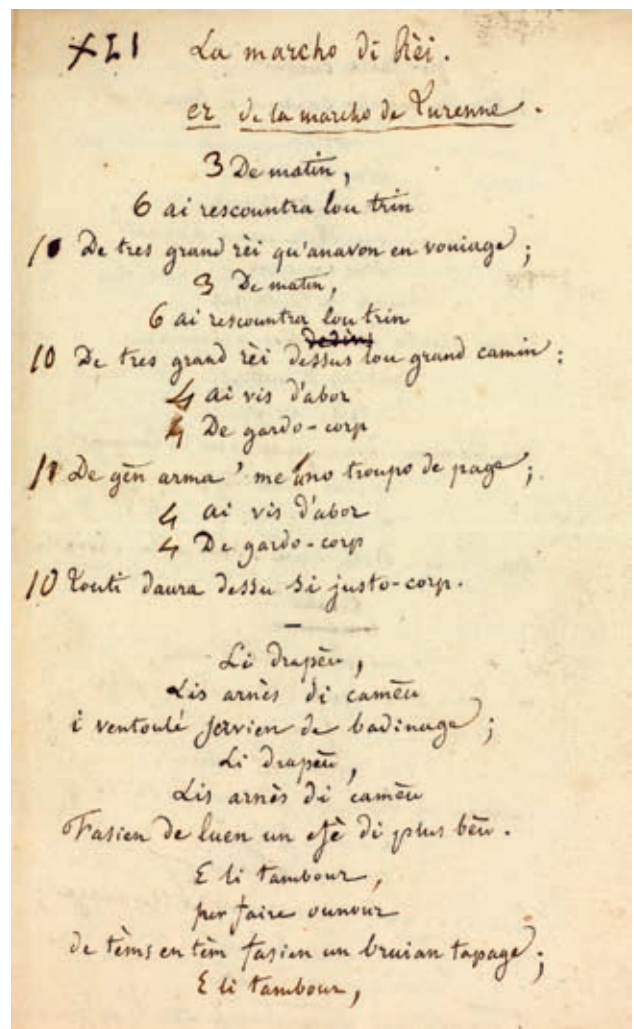 XLI La marcho di Rèi.
er de la marcho de Turenne.
3 De matin,
6 ai rescountra lou trin
10 De tres grand rèi qu'anavon en vouiage;
3 De matin,
6 ai rescountra lou trin
dedins
10 De tres grand rèi dessus lou grand camin:
4 ai vis d'abor
4 De gardo-corp
10 De gèn arma' me uno troupo de page;
4 ai vis d'abor
4 De gardo-corp
10 Touti daura dessu si justo-corp.
Li drapèu,
Lis arnès di camèu
i ventoulé servien de badinage;
Li drapèu,
Lis arnès di camèu
Fasien de luen un efè di plus bèu.
E li tambour,
per faire ounour
de tèms en tèm fasien un bruian tapage;
E li tambour,